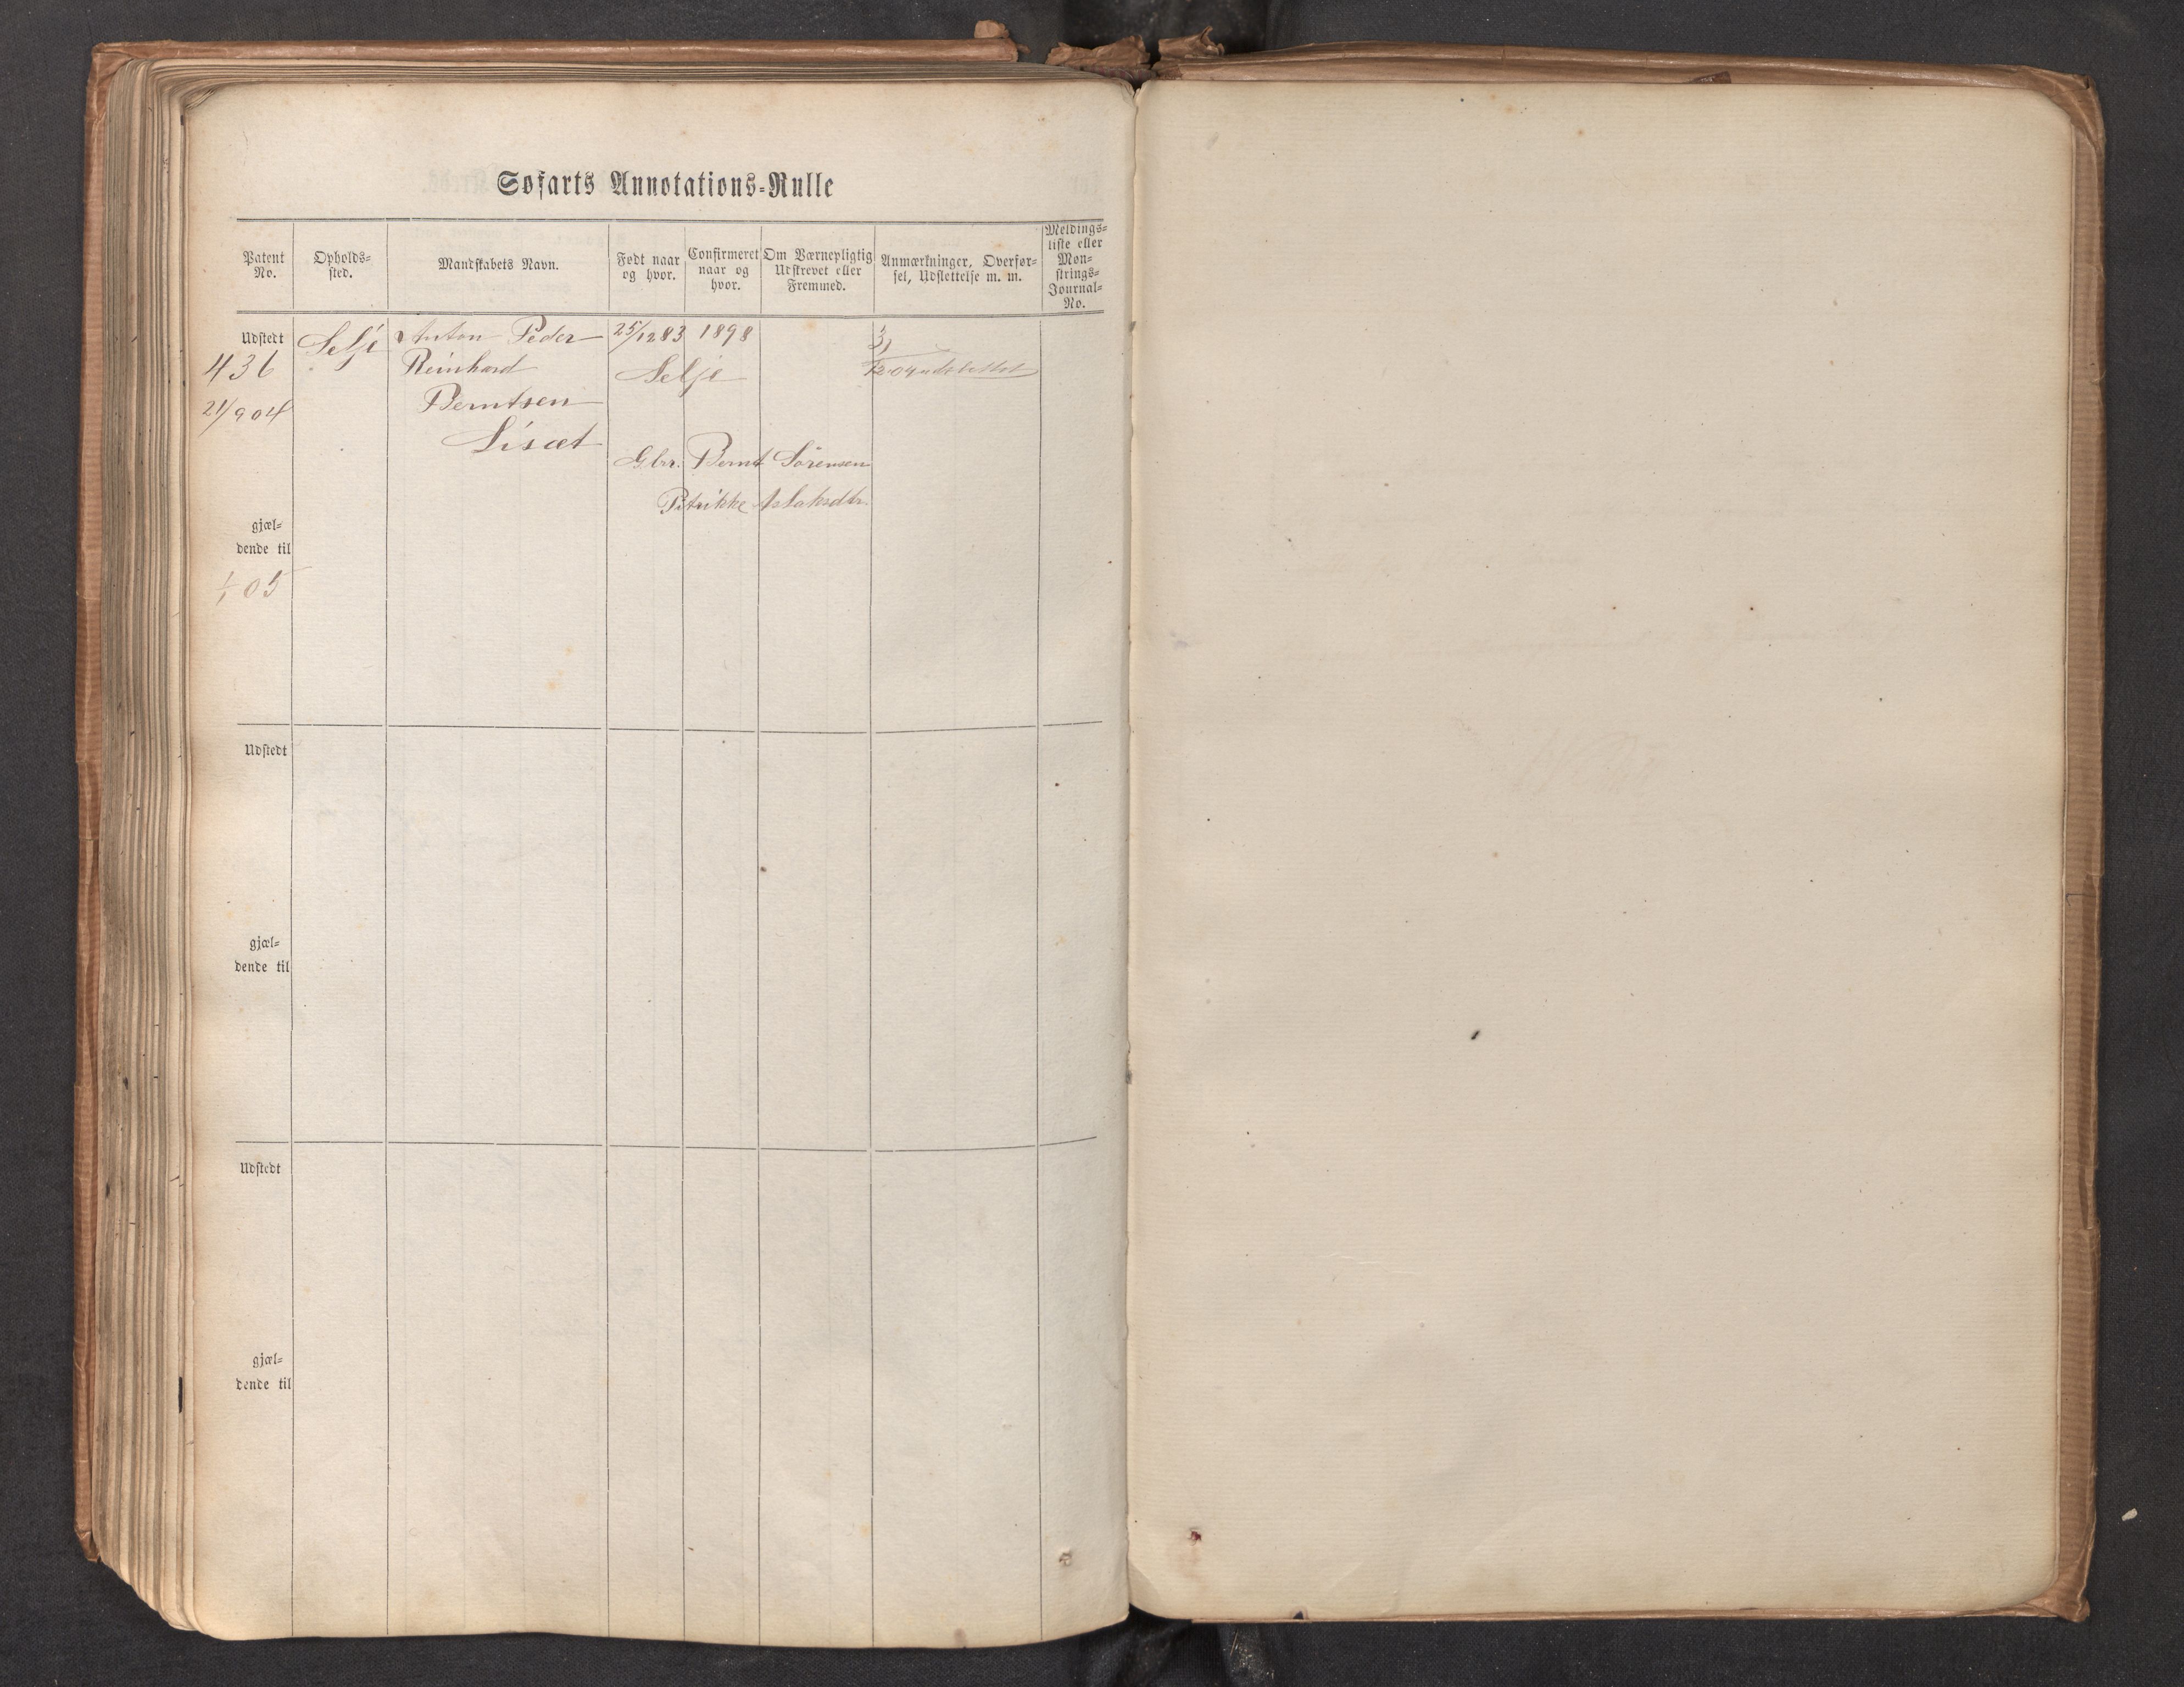 Søfarts Annotations-Rulle
Patent
No.
Opholds-
sted.
Mandskabets Navn.
Født naar
og hvor.
Confirmeret
naar og
hvor.
Om Værnepligtig
Udskrevet eller
Fremmed.
Anmærkninger, Overfør-
sel, Udslettelse m. m.
Meldings-
liste eller
Møn-
strings-
Journal-
No.
Udstedt
436
21/9 04
gjæl-
dende til
1/1 05
Selje
Anton Peder
Reinhard
Berntsen
Lisæt
25/12 83
1898
Selje
Gbr. Bernt Sörensen
Petrikke Aslaksdtr.
31/12 04 udslettet
Udstedt
gjæl-
dende til
Udstedt
gjæl-
dende til